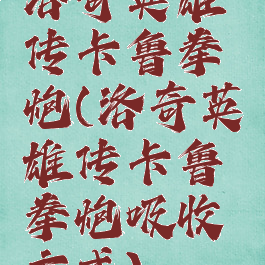 洛奇英雄
传卡鲁拳
炮(洛奇英
雄传卡鲁
拳炮吸收